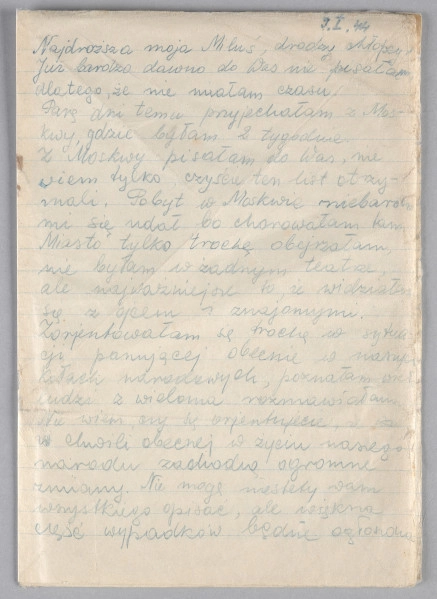 9.I.44
Najdroższa moja Miluś, drodzy chłopcy
Już bardzo dawno do Was nie pisałam
dlatego, że nie miałam czasu.
Parę dni temu przyjechałam z Mos-
kwy, gdzie byłam 2 tygodnie.
Z Moskwy pisałam do Was, nie
wiem tylko, czyście ten list otrzy-
mali. Pobyt w Moskwie niebardzo
mi się udał bo chorowałam tam.
Miasto tylko trochę obejrzałam,
nie byłam w żadnym teatrze,
ale najważniejsze to, że widziałam
się z ojcem i znajomymi.
Zorjentowałam się trochę w sytua-
cji panującej obecnie w naszych
kołach narodowych, poznałam
ludzi z wieloma rozmawiałam.
Nie wiem czy się orjentujecie, że
w chwili obecnej w życiu naszego
narodu zachodzą ogromne
zmiany. Nie mogę niestety wam
wszystkiego opisać, ale większa
część wypadków będzie